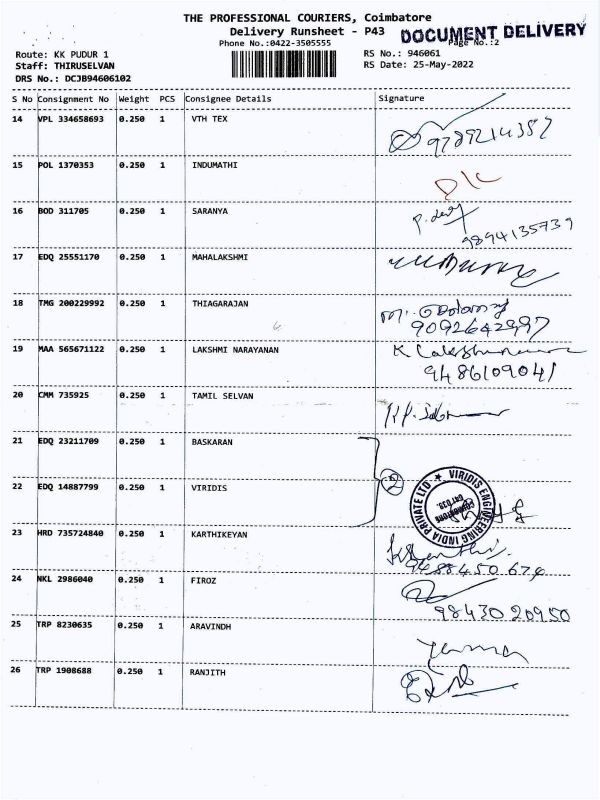 THE PROFESSIONAL COURIERS, Coimbatore
Delivery Runsheet - P43
DOCUMENT DELIVERY
Phone No.:0422-3505555
Page No.:2
Route: KK PUDUR 1
RS No.: 946061
Staff: THIRUSELVAN
RS Date: 25-May-2022
DRS No.: DCJB94606102
S No Consignment No Weight PCS Consignee Details Signature
14 VPL 334658693 0.250 1 VTH TEX
9789214357
15 POL 1370353 0.250 1 INDUMATHI
D/C
16 BOD 311705 0.250 1 SARANYA
P. devi
9894135739
17 EDQ 25551170 0.250 1 MAHALAKSHMI
18 TMG 200229992 0.250 1 THIAGARAJAN
9092642997
19 MAA 565671122 0.250 1 LAKSHMI NARAYANAN
9486109041
20 CMM 735925 0.250 1 TAMIL SELVAN
21 EDQ 23211709 0.250 1 BASKARAN
2
22 EDQ 14887799 0.250 1 VIRIDIS
VIRIDIS ENGINEERING INDIA PRIVATE LTD
23 HRD 735724840 0.250 1 KARTHIKEYAN
9488450674
24 NKL 2986040 0.250 1 FIROZ
9843020950
25 TRP 8230635 0.250 1 ARAVINDH
26 TRP 1908688 0.250 1 RANJITH